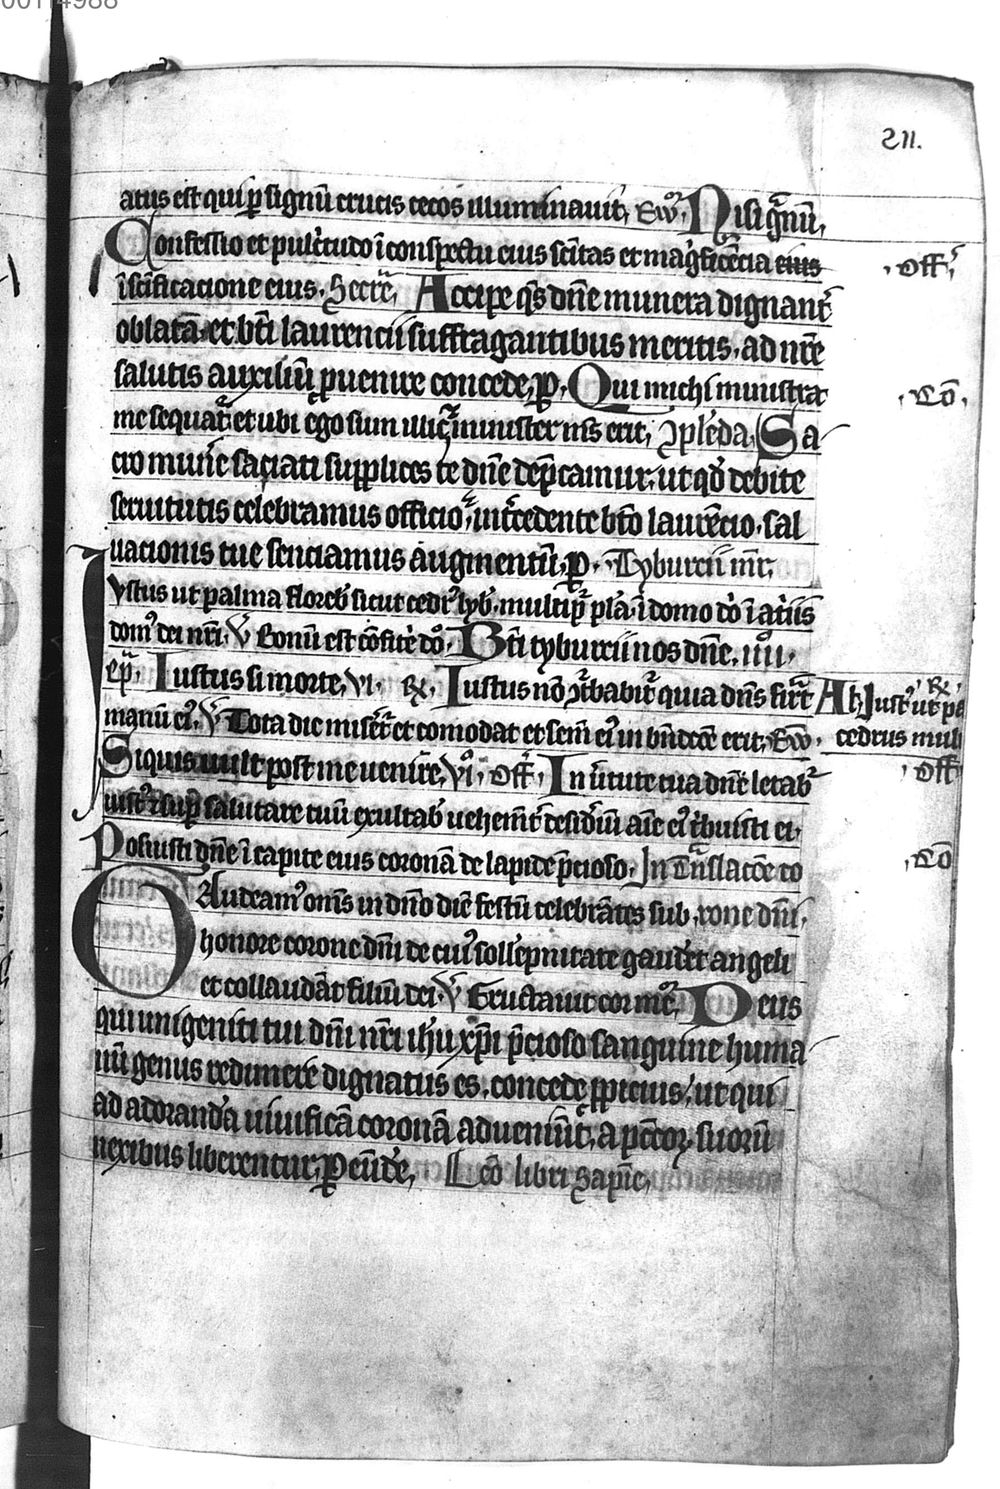 00114988
211.
atus est qui ꝑ signū crucis cecos illuminavit, Ewͦ. Nisi gͣnū,
Confessio et pulcͥtudo ī conspectu eius scītas et magͥficēcia eius
.Offͥ.
ī scīficacione eius. Secrͤ, Accipe qs̄ dn̄e munera dignantͬ
oblata. et bt̄i laurencii suffragantibus meritis. ad nr̄e
salutis auxiliū ꝓuenire concede, ꝑ. Qui michi ministra
.Cō.
me sequatͬ et ubi ego sum illic ⁊ minister ms̄ erit, Ꝯplēda, Sa
cro munͤe saciati supplices te dn̄e dep̄camur. ut qd̄ debite
seruitutis celebramus officio, int̄cedente bt̄o laurēcio. sal
uacionis tue senciamus augmentū, ꝑ. Tyburcii mr̄.
Iustus ut palma florebͭ sicut cedrͨ lybͥ. multipͬ plāͭ ī domo dō ī atͥiis
domͨ dei nr̄i. ℣ Bonū est cōfitͥe dō. Bt̄i tyburcii nos dn̄e. iiiͦ.
ep̄. Iustus si morte, vi. ℞. Iustus nō ꝯtͬbabitͬ quia dn̄s firͣt
A ℞. Justͨ ut pa
manū eiͨ. ℣ Tota die miserͭ et comodat et sem̄ eiͨ in bn̄dccōe erit, Ew.
cedrus mul
Siquis uult post me uenire, viͦ. Off. In uͥtute tua dn̄e letabͬ
.Off.
iustͨ ⁊ suꝑ salutare tuū exultabͭ uehemēt̄ desidͥiū aīe eiͨ tͥbuisti ei.
Posuisti dn̄e ī capite eius coronā de lapide p̄cioso. In tͣnslacōe co
.Cō
Gaudeamͨ om̄s in dn̄o diē festū celebrātes sub .rone dn̄i.
honore corone dn̄i de cuiͨ sollēpnitate gaudēt angeli
et collaudāt filiū dei. ℣ Eructavit cor mͤ. Deus
qui unigeniti tui dn̄i nr̄i ih̄u xp̄i p̄cioso sanguine huma
nū genus redimere dignatus es, concede ꝓpicius, ut qui
ad adoranda uiuificā coronā adueniūt, a pc̄coꝝ suorū
nexibus liberentur, ꝑ eūdē, Lcō libri sapīe,